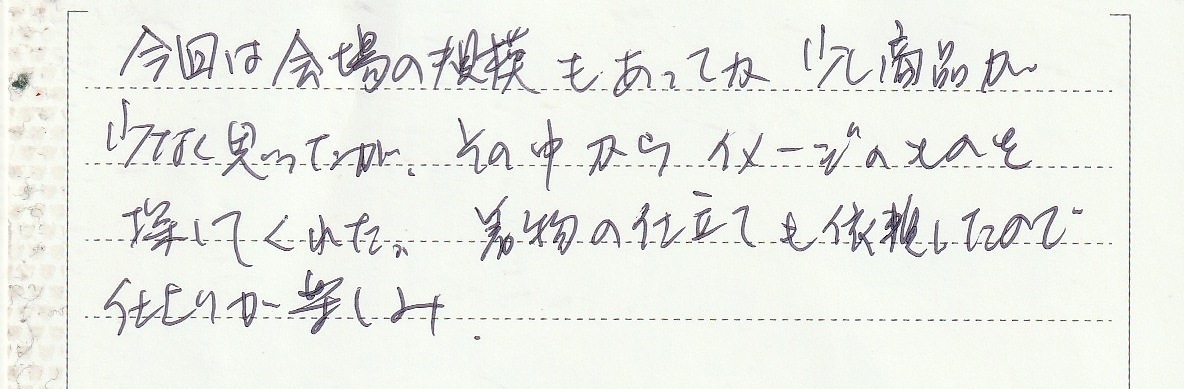 今回は会場の規模もあってか少し商品が
少なく思ったが、その中からイメージのものを
探してくれた。着物の仕立ても依頼したので
仕上りが楽しみ.